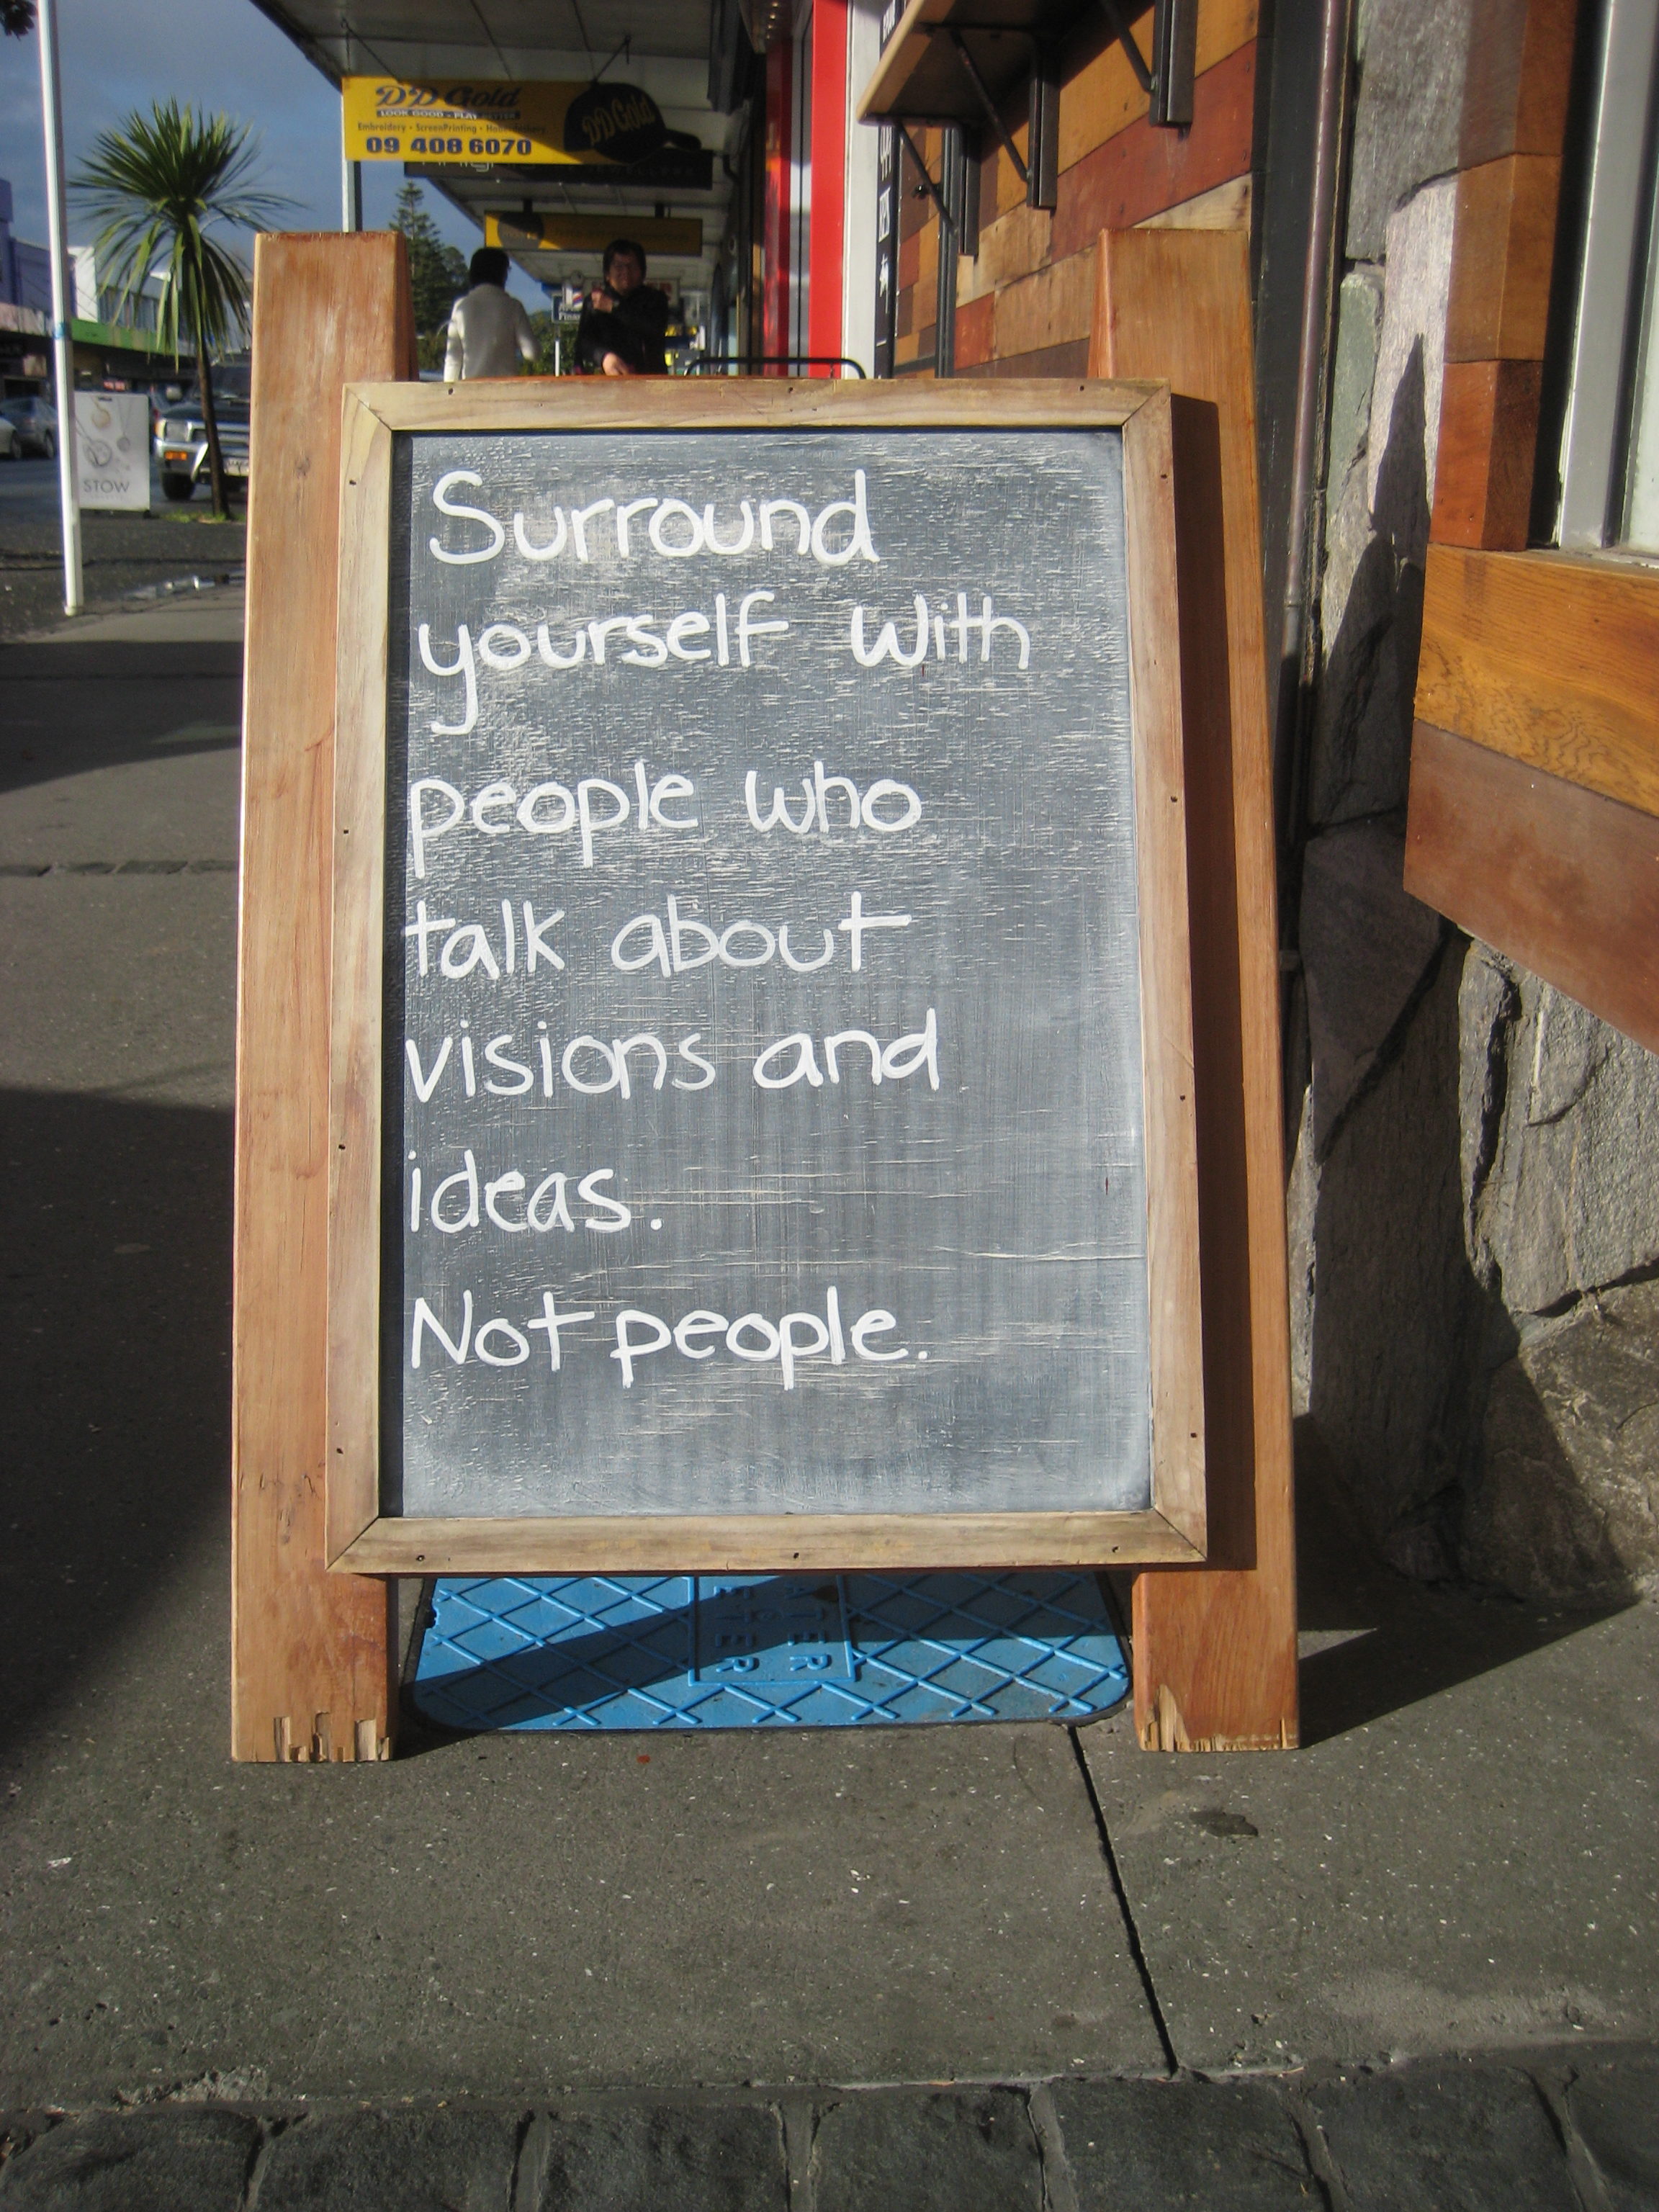 DD Gold
LOOK GOOD - PLAY BETTER
Embroidery • ScreenPrinting •
09 408 6070
DD Gold
STOW
Surround
yourself with
people who
talk about
visions and
ideas.
Not people.
WATER
METER